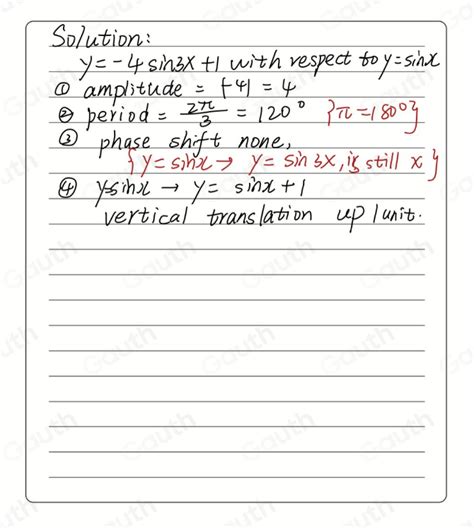 Solution:
y=-4sin3x+1 with respect to y=sinx
① amplitude = |-4| = 4
② period = 2π/3 = 120° {π=180°}
③ phase shift none,
{y=sinx → y=sin3x, is still x}
④ y=sinx → y= sinx+1
vertical translation up 1 unit.